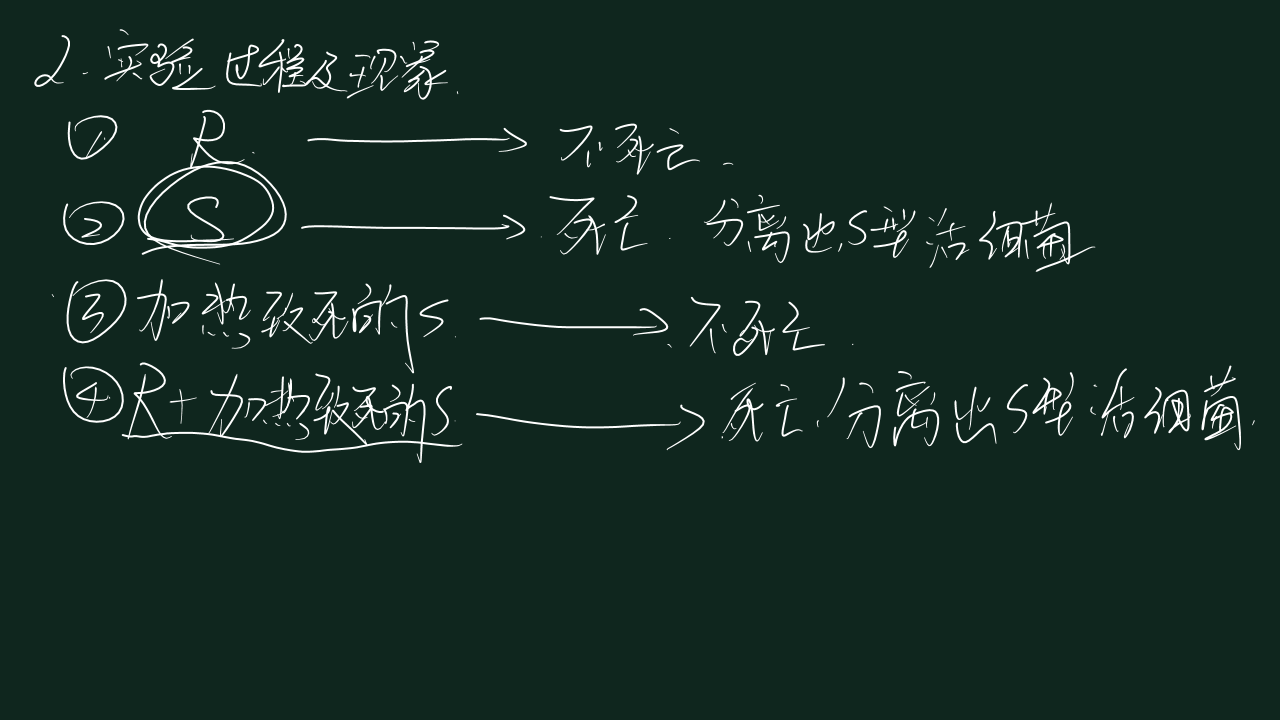 2. 实验过程及现象.
① R. ⟶ 不死亡.
② S ⟶ 死亡. 分离出S型活细菌
③ 加热致死的S. ⟶ 不死亡.
④ R+加热致死的S. ⟶ 死亡,分离出S型活细菌.